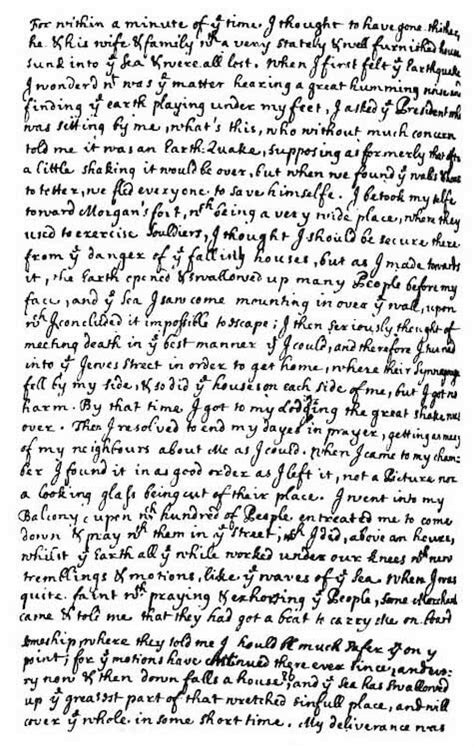 For within a minute of yᵉ time I thought to have gone thither,
he & his wife & family wᵗʰ a very stately & well furnished house
sunk into yᵉ Sea & were all lost. When I first felt yᵉ Earthquake
I wonderd wᵗ was yᵉ matter hearing a great humming noise and
finding yᵉ earth playing under my feet, I asked yᵉ President who
was setting by me, what's this, who without much concern
told me it was an Earth-Quake, supposing as formerly that after
a little shaking it would be over, but when we found yᵉ walls
to totter, we fled everyone to save himselfe. I betook my selfe
toward Morgan's fort, wᶜʰ being a very wide place, where they
used to exercise Souldiers, I thought I should be secure there
from yᵉ danger of yᵉ falling houses, but as I made towards
it, the Earth opened & swallowed up many People before my
face, and yᵉ Sea I saw come mounting in over yᵉ wall, upon
wᶜʰ I concluded it impossible to escape; I then seriously thought of
meeting death in yᵉ best manner yᵗ I could, and therefore I turned
into yᵉ Jewes Street in order to get home, where their Synagogue
fell by my side, & so did yᵉ houses on each side of me, but I got no
harm. By that time I got to my Lodging the great shake was
over. Then I resolved to end my dayes in prayer, getting as many
of my neighbours about me as I could. When I came to my cham-
ber I found it in as good order as I left it, not a Picture nor
a looking glass being out of their place. I went into my
Balcony upon wᶜʰ hundred of People entreated me to come
down & pray wᵗʰ them in yᵉ street, wᶜʰ I did, above an houre,
whilst yᵉ Earth all yᵉ while worked under our knees wᵗʰ new
tremblings & motions, like yᵉ waves of yᵉ Sea. When I was
quite faint wᵗʰ praying & exhorting yᵉ People, some Merchants
came & told me that they had got a boat to carry me on board
some ship where they told me I should be much safer yⁿ on yᵉ
point; for yᵉ motions have continued there ever since, and eve-
ry now & then down falls a house, and yᵉ Sea has swallowed
up yᵉ greatest part of that wretched sinfull place, and will
cover yᵉ whole in some short time. My deliverance was